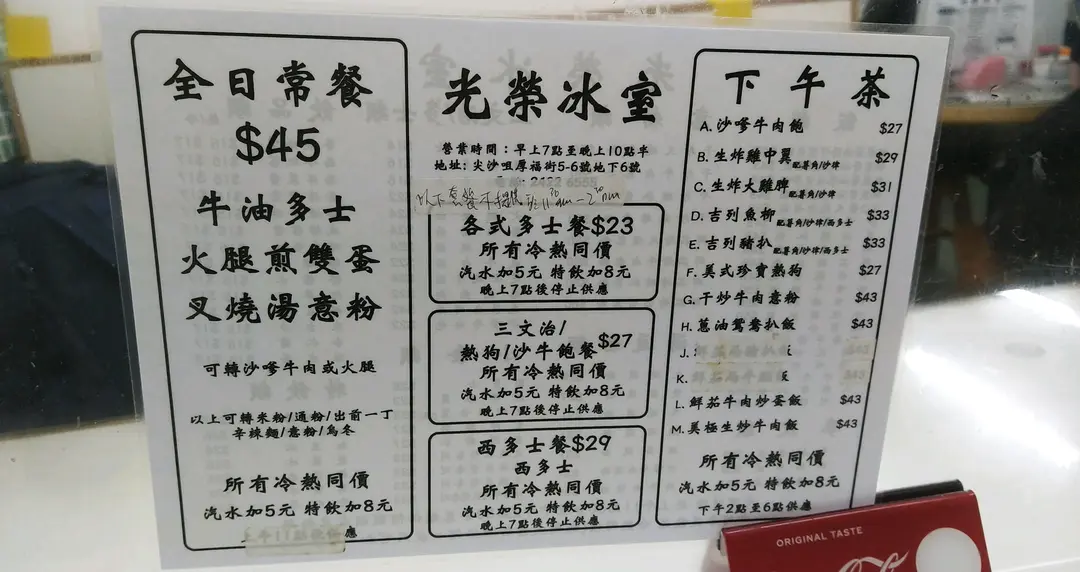 全日常餐
$45
牛油多士
火腿煎雙蛋
叉燒湯意粉
可轉沙爹牛肉或火腿
以上可轉米粉/通粉/出前一丁
辛辣麵/意粉/烏冬
所有冷熱同價
汽水加5元 特飲加8元
應
光榮冰室
營業時間：早上7點至晚上10點半
地址: 尖沙咀厚福街5-6號地下6號
2422 6555
以下套餐不提供
各式多士餐$23
所有冷熱同價
汽水加5元 特飲加8元
晚上7點後停止供應
三文治/
熱狗/沙牛飽餐$27
所有冷熱同價
汽水加5元 特飲加8元
晚上7點後停止供應
西多士餐$29
西多士
所有冷熱同價
汽水加5元 特飲加8元
晚上7點後停止供應
下午茶
A. 沙嗲牛肉飽 $27
B. 生炸雞中翼配薯角/沙律 $29
C. 生炸大雞脾配薯角/沙律 $31
D. 吉列魚柳配薯角/沙律/西多士 $33
E. 吉列豬扒配薯角/沙律/西多士 $33
F. 美式珍寶熱狗 $27
G. 干炒牛肉意粉 $43
H. 蔥油鴛鴦扒飯 $43
J.
K.
L. 鮮茄牛肉炒蛋飯 $43
M. 美極生炒牛肉飯 $43
所有冷熱同價
汽水加5元 特飲加8元
下午2點至6點供應
ORIGINAL TASTE